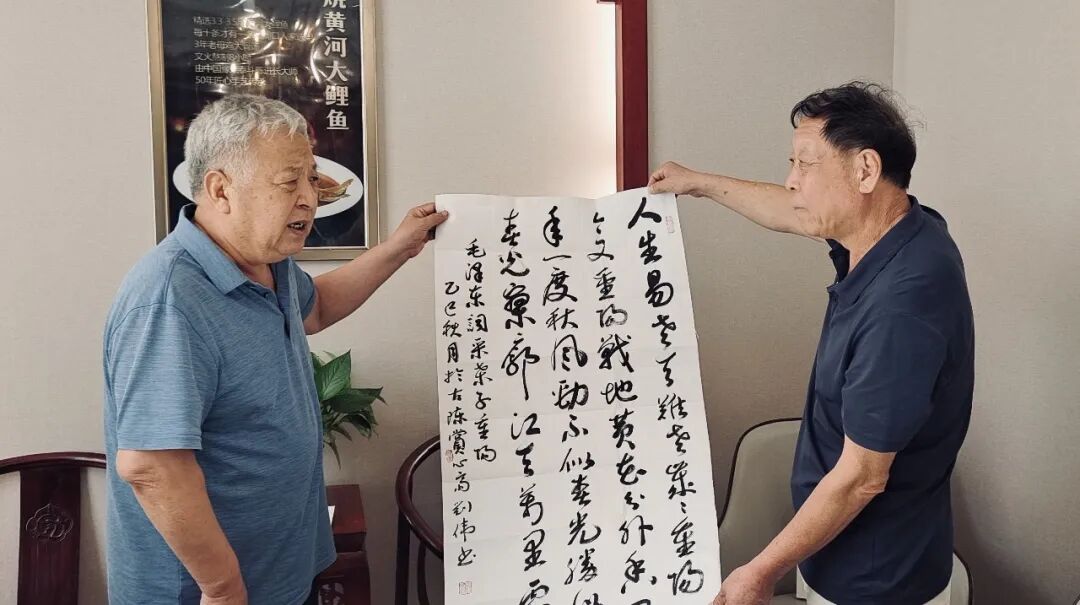 烧黄河大鲤鱼
精选3.3-3.5
每十条才有一
3年老母鸡
文火
由中国
大师
50年匠心
人生易老天難老歲々重陽
今又重陽戰地黄花分外香一
年一度秋風勁不似春光勝似
春光寥廓江天萬里霜
毛澤东词采桑子重陽
乙巳秋月於古陈賞心斋刘伟书